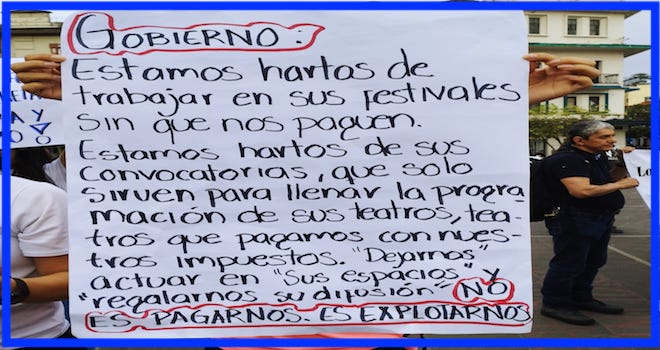 GOBIERNO:
Estamos hartas de
trabajar en sus festivales
sin que nos paguen.
Estamos hartos de sus
convocatorias, que solo
sirven para llenar la progra
mación de sus teatros, tea-
tros que pagamos con nues-
tros impuestos. "Dejarnos"
actuar en "sus espacios" y
"regalarnos su difusión" NO
ES PAGARNOS. ES EXPLOTARNOS